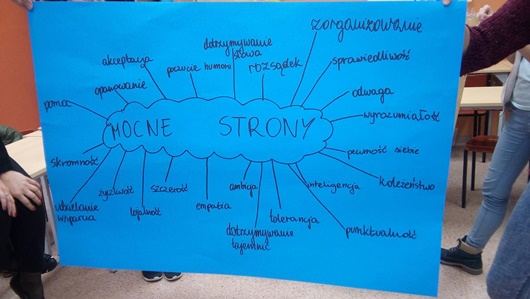 zorganizowanie
dotrzymywanie
słowa
akceptacja
poczucie humoru
rozsądek
sprawiedliwość
opanowanie
odwaga
pomoc
wyrozumiałość
MOCNE STRONY
skromność
pewność siebie
życzliwość
szczerość
ambicja
inteligencja
koleżeństwo
udzielanie
wsparcia
lojalność
empatia
tolerancja
dotrzymywanie
tajemnic
punktualność